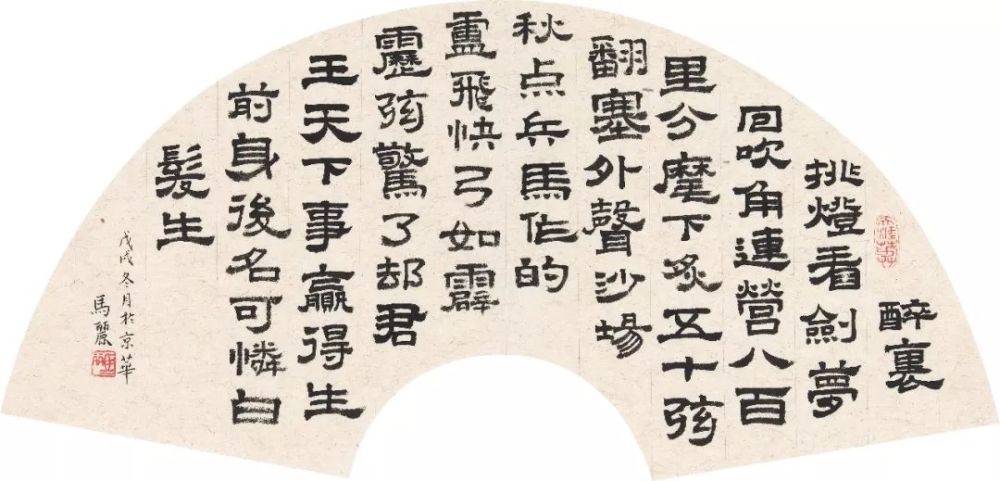 醉裏
挑燈看劍夢
回吹角連營八百
里分麾下炙五十弦
翻塞外聲沙場
秋点兵馬作的
盧飛快弓如霹
靂弦驚了却君
王天下事贏得生
前身後名可憐白
髮生
戊戌冬月於京華
馬麗